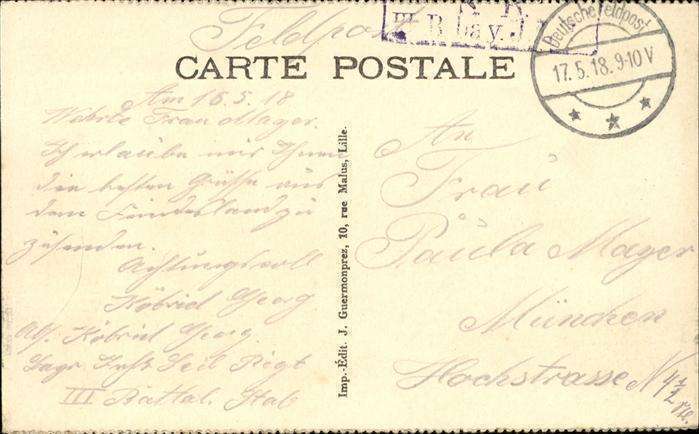 Feldpost
III
B. bay. J.
Deutsche Feldpost
17.5.18. 9-10 V
CARTE POSTALE
Am 16.5.18
Werte Frau Mayer.
Ich erlaube mir Ihnen
die besten Grüße aus
dem Feindesland zu
zusenden.
Achtungsvoll
Köbriel Georg
Abs. Köbriel Georg.
bayr. Inft. Leib Regt
III Battal. Stab
Imp.-Édit. J. Guermonprez, 10, rue Malus, Lille.
An
Frau
Paula Mayer
München
Hochstrasse N 4